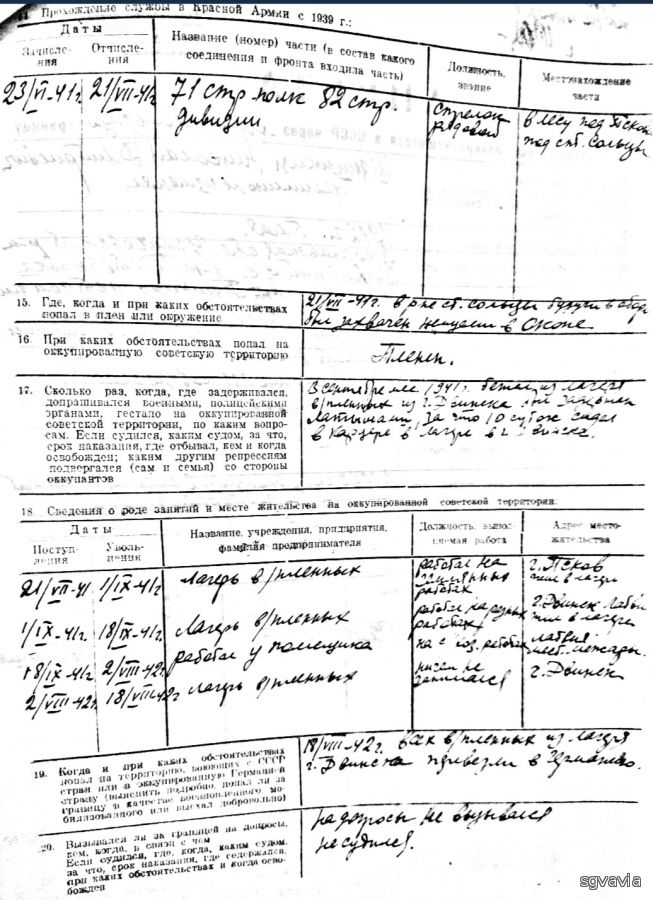 14. Прохождение службы в Красной Армии с 1939 г.:
Даты
Название (номер) части (в состав какого соединения и фронта входила часть)
Должность, звание
Местонахождение части
Зачисления
Отчисления
23/VI-41г 21/VII-41г 71 стр. полк 82 стр. стрелок в лесу под Псков
дивизии рядовой под ст. Сольцы
15. Где, когда и при каких обстоятельствах
попал в плен или окружение
21/VII-41г. в р-не ст. Сольцы будучи в
был захвачен немцами в окопе
16. При каких обстоятельствах попал на
оккупированную советскую территорию
Пленен.
17. Сколько раз, когда, где задерживался,
допрашивался военными, полицейскими
органами, гестапо на оккупированной
советской территории, по каким вопро-
сам. Если судился, каким судом, за что,
срок наказания, где отбывал, кем и когда
освобожден; каким другим репрессиям
подвергался (сам и семья) со стороны
оккупантов
В сентябре мес 1941г. бежал из лагеря
в/пленных из г. Двинска был задержан
латышами, за что 10 суток сидел
в карцере в лагере в г. Двинске.
18. Сведения о роде занятий и месте жительства на оккупированной советской территории:
Даты
Название, учреждения, предприятия,
фамилия предпринимателя
Должность, выпол-
няемая работа
Адрес место-
жительства
Поступ-
ления
Уволь-
нения
21/VII-41 1/IX-41г Лагерь в/пленных работал на земляных работах г. Псков жил в лагере
1/IX-41г 18/IX-41г Лагерь в/пленных работал на разных работах г. Двинск жил в лагере
18/IX-41г 2/VIII-42г работал у помещика на с. хоз. работах Латвия
2/VIII-42г 18/VIII-42г лагерь в/пленных ничем не занимался г. Двинск
19. Когда и при каких обстоятельствах
попал на территорию, воюющих с СССР
стран или в оккупированную Германией
страну (выяснить подробно, попал ли за
границу в качестве военнопленного, мо-
билизованного или выехал добровольно)
18/VIII-42г. всех в/пленных из лагеря
г. Двинска привезли в Германию.
20. Вызывался ли за границей на допросы,
кем, когда, в связи с чем
Если судился, где, когда, каким судом,
за что, срок наказания, где содержался,
при каких обстоятельствах и когда осво-
божден
На допросы не вызывался
не судился.
sgvavia